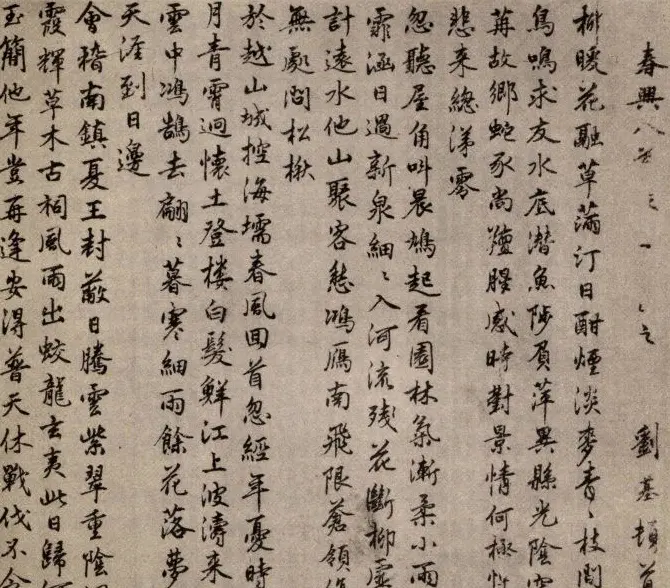 春興八首 劉基頓首
柳暖花融草滿汀日酣煙淡麥青〻枝間
鳥鳴求友水底潛魚陟負萍異縣光陰
苒故鄉蛇豕尚羶腥感時對景情何極
悲來總涕零
忽聽屋角叫晨鳩起看園林氣漸柔小雨
霏涵日過新泉細〻入河流殘花斷柳
計遠水他山聚客愁鴻雁南飛限蒼嶺
無處問松楸
於越山城控海壖春風回首忽經年憂時
月青霄迥懷土登樓白髮鮮江上波濤來
雲中鴻鵠去翩〻暮寒細雨餘花落夢
天涯到日邊
會稽南鎮夏王封蔽日騰雲紫翠重陰
霞輝草木古祠風雨出蛟龍玄夷此日歸
玉簡他年豈再逢安得普天休戰伐不令